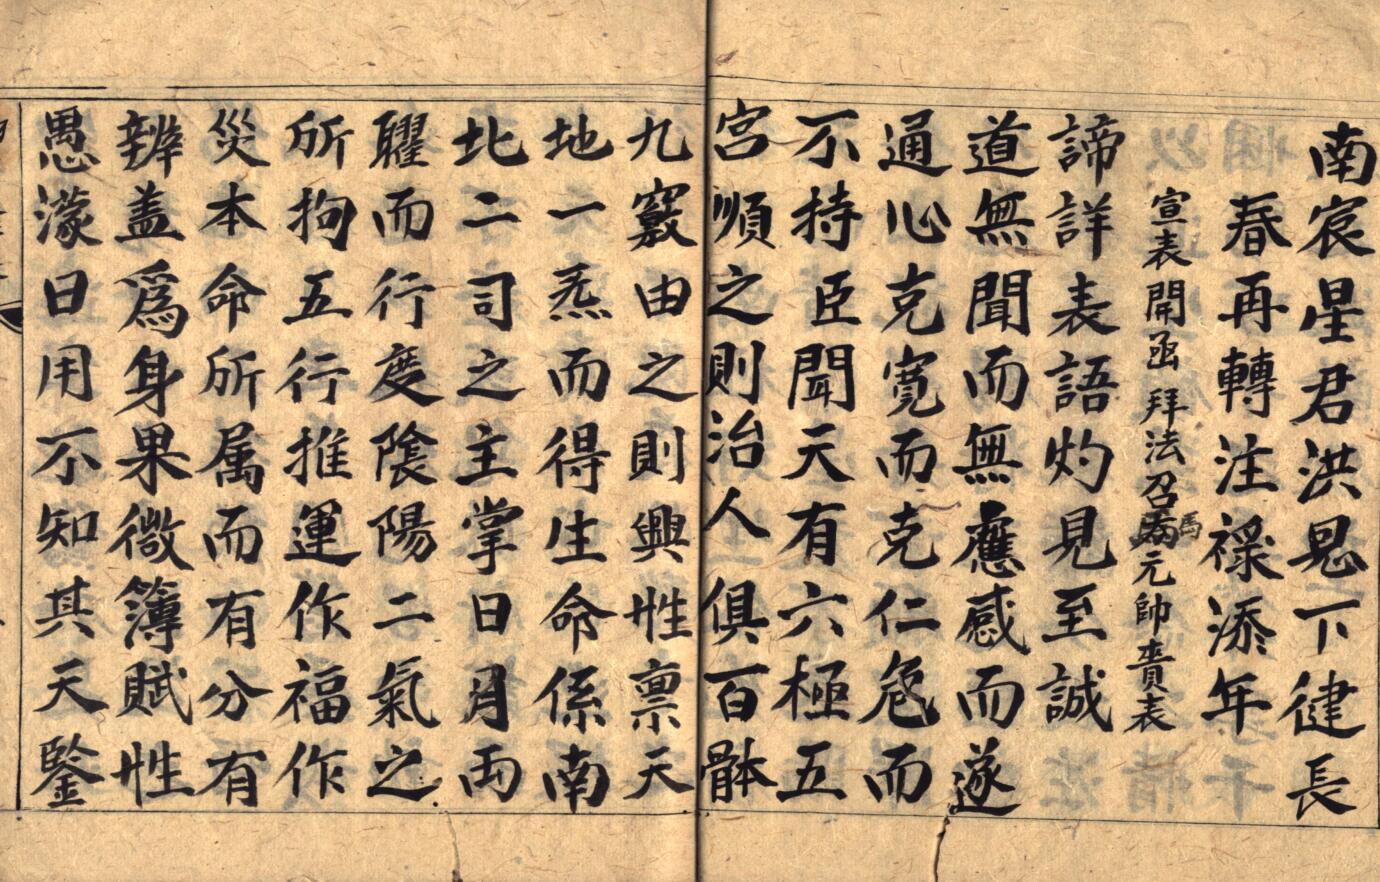 南宸星君洪恩下健長
春再轉注祿添年
宣表開函拜法召為馬元帥賫表
諦詳表語灼見至誠
道無聞而無應感而遂
通心克寬而克仁危而
不持臣聞天有六極五
宮順之則治人俱百骵
九竅由之則興性禀天
地一炁而得生命係南
北二司之主掌日月兩
耀而行度陰陽二氣之
所拘五行推運作福作
災本命所属而有分有
辨盖爲身果微簿賦性
愚濛日用不知其天鑒